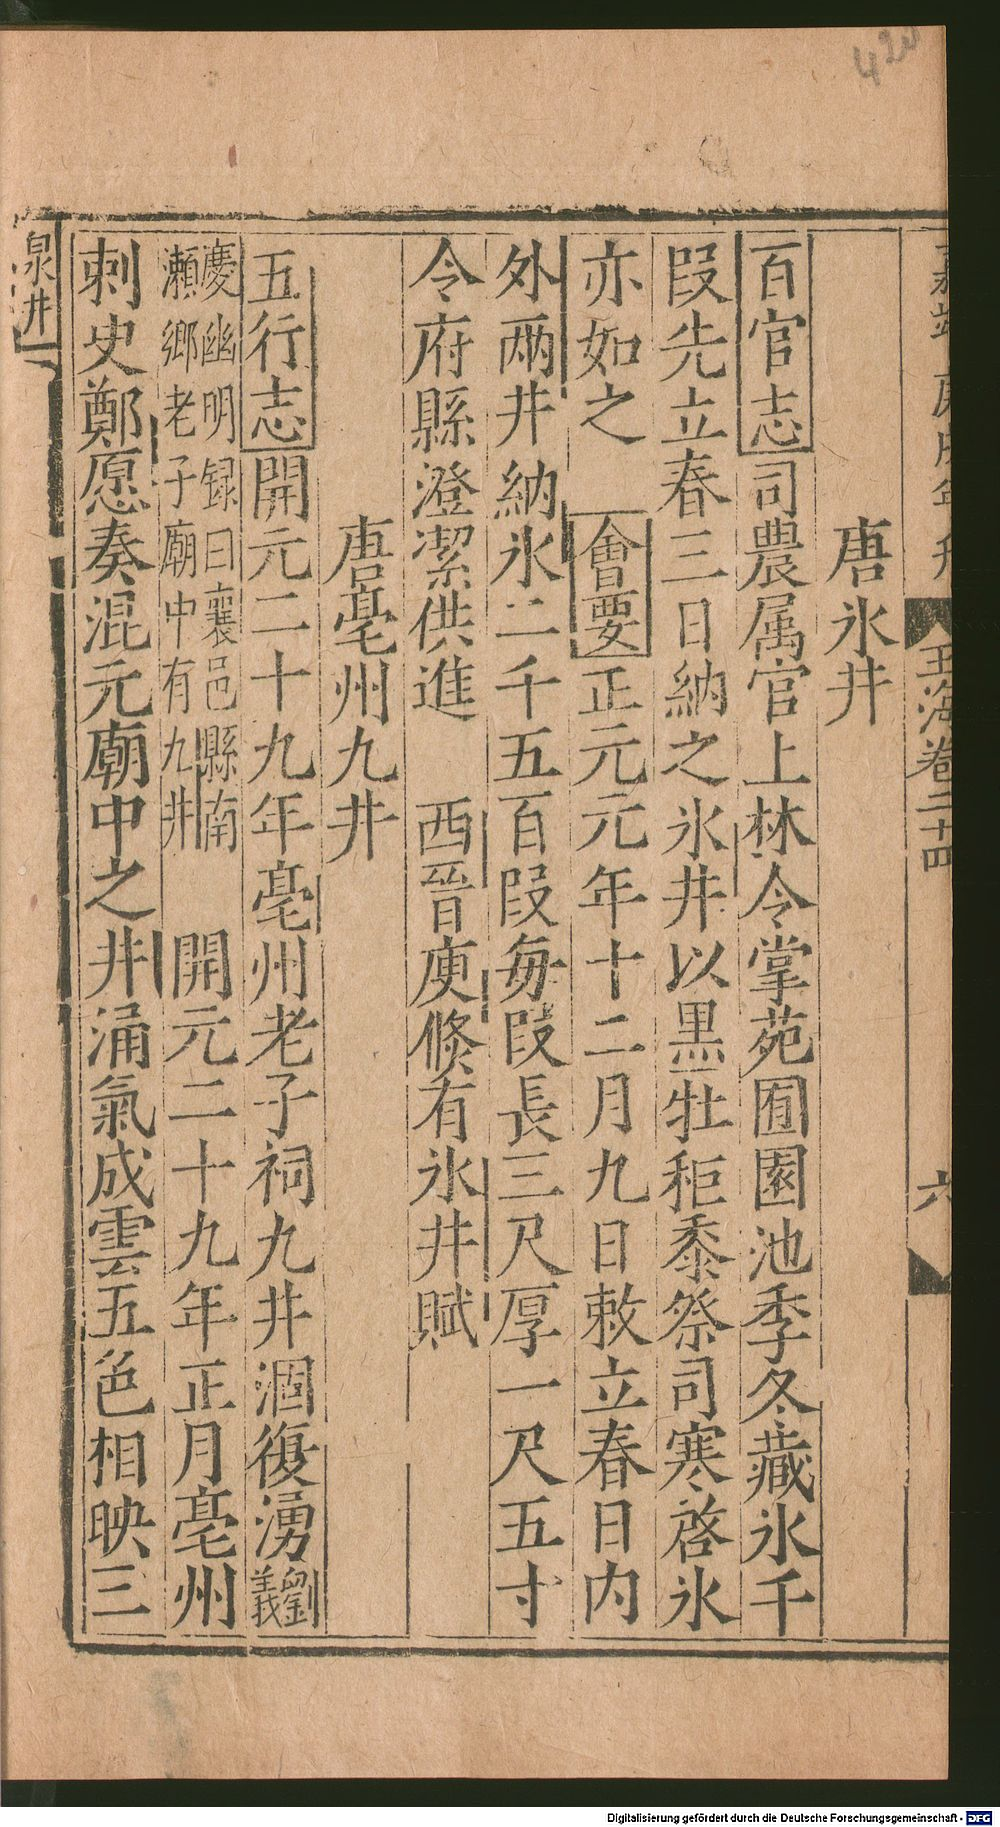 420
玉海卷二十四
六
唐氷井
百官志司農属官上林令掌苑囿園池季冬藏氷千
叚先立春三日納之氷井以黒牡秬黍祭司寒啓氷
亦如之 會要正元元年十二月九日敕立春日内
外兩井納氷二千五百叚毎叚長三尺厚一尺五寸
令府縣澄潔供進 西晉庾儵有氷井賦
唐亳州九井
五行志開元二十九年亳州老子祠九井涸復湧劉義
慶幽明録曰襄邑縣南瀬鄉老子廟中有九井 開元二十九年正月亳州
刺史鄭愿奏混元廟中之井涌氣成雲五色相映三
泉井
Digitalisierung gefördert durch die Deutsche Forschungsgemeinschaft - DFG